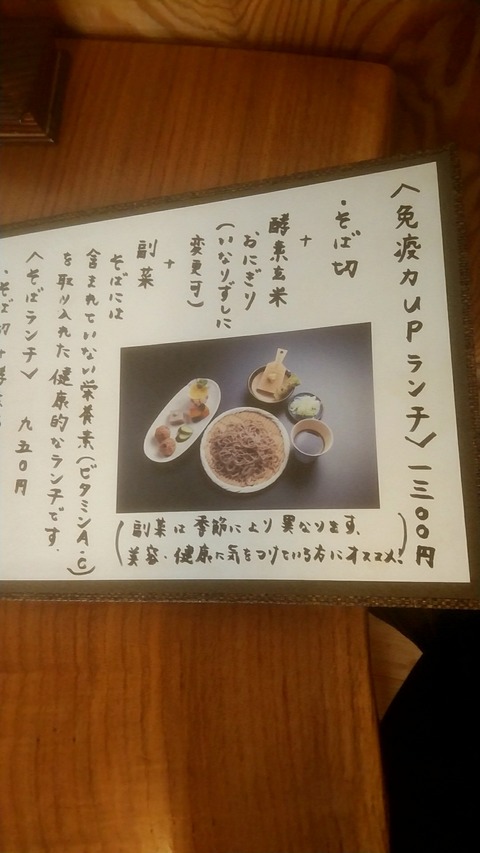 〈免疫力UPランチ〉一三〇〇円
・そば切
+
酵素玄米
おにぎり
(いなりずしに
変更可)
+
副菜
そばには
含まれていない栄養素(ビタミンA・C)
を取り入れた健康的なランチです。
(副菜は季節により異なります。
美容・健康に気をつけている方にオススメ!)
〈そばランチ〉 九五〇円
・そば切